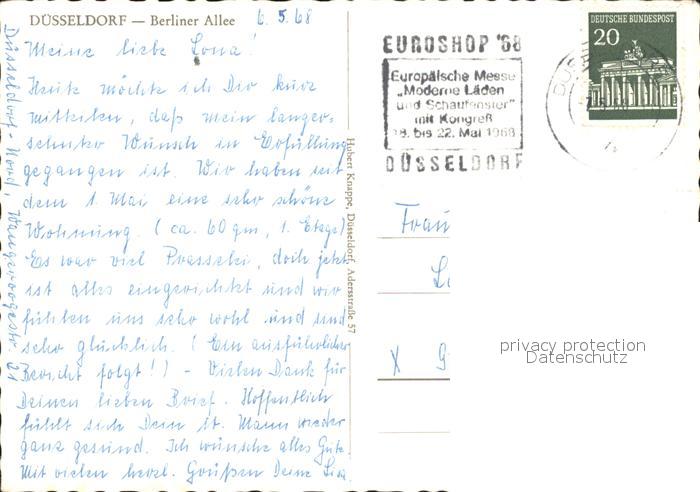 DÜSSELDORF — Berliner Allee
6.5.68
Meine liebe Lona!
Heute möchte ich Dir kurz
mitteilen, daß mein langer-
sehnter Wunsch in Erfüllung
gegangen ist. Wir haben seit
dem 1. Mai eine sehr schöne
Wohnung. (ca. 60 qm, 1. Etage)
Es war viel Prasselei, doch jetzt
ist alles eingerichtet und wir
fühlen uns sehr wohl und sind
sehr glücklich. (Ein ausführlicher
Bericht folgt!) - Vielen Dank für
Deinen lieben Brief. Hoffentlich
fühlt sich Dein lb. Mann wieder
ganz gesund. Ich wünsche alles Gute.
Mit vielen herzl. Grüßen Deine Lisa
Düsseldorf-Nord, Wangeroogestr. 21
Hubert Knappe, Düsseldorf, Adersstraße 57
EUROSHOP '68
Europäische Messe
„Moderne Läden
und Schaufenster"
mit Kongreß
18. bis 22. Mai 1968
DÜSSELDORF
DEUTSCHE BUNDESPOST
20
Frau
X
privacy protection
Datenschutz